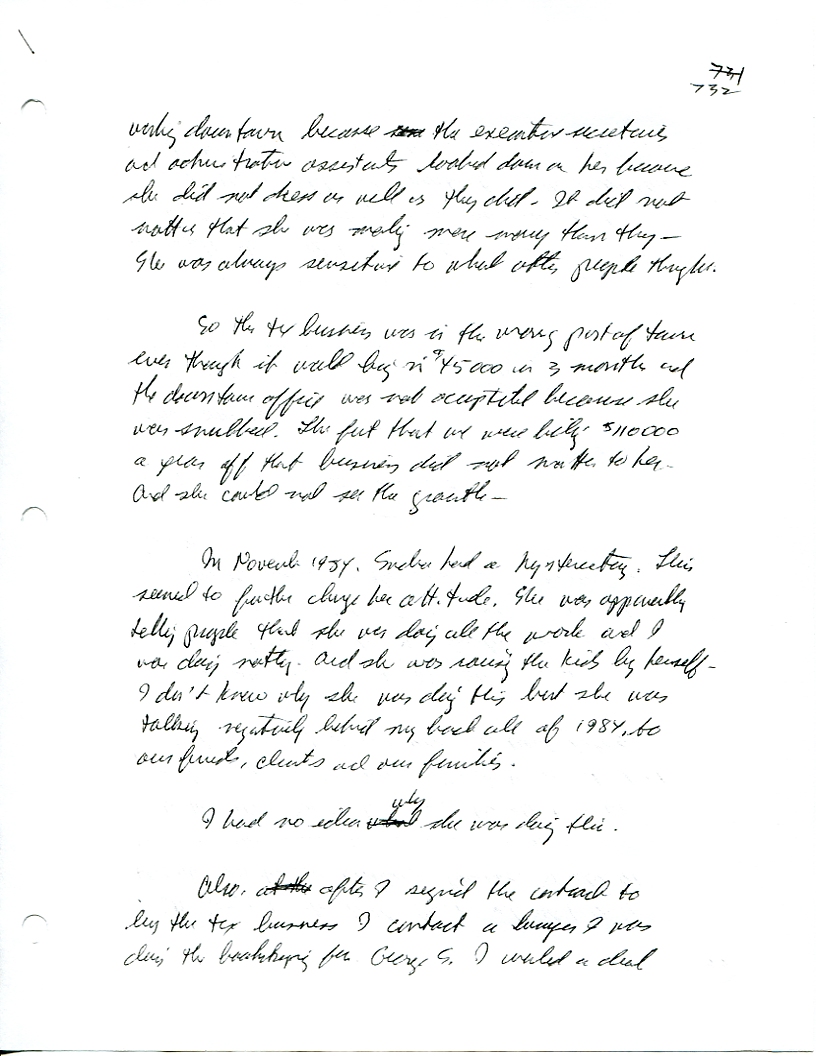 731
732
working downtown because the executive secretaries
and administrative assistants looked down on her because
she did not dress as well as they did. It did not
matter that she was making more money than they —
She was always sensitive to what other people thought.
So the tax business was in the wrong part of town
even though it would bring in $45000 in 3 months and
the downtown office was not acceptable because she
was snubbed. The fact that we were billing $110000
a year off that business did not matter to her.
And she could not see the growth —
In November 1984. had a hysterectomy. This
seemed to further change her attitude. She was apparently
telling people that she was doing all the work and I
was doing nothing. And she was raising the kids by herself —
I don't know why she was doing this but she was
talking negatively behind my back all of 1984, to
our friends, clients and our families.
I had no idea why she was doing this.
Also, after I signed the contract to
buy the tax business I contact a lawyer I was
doing the bookkeeping for. George S. I worked a deal